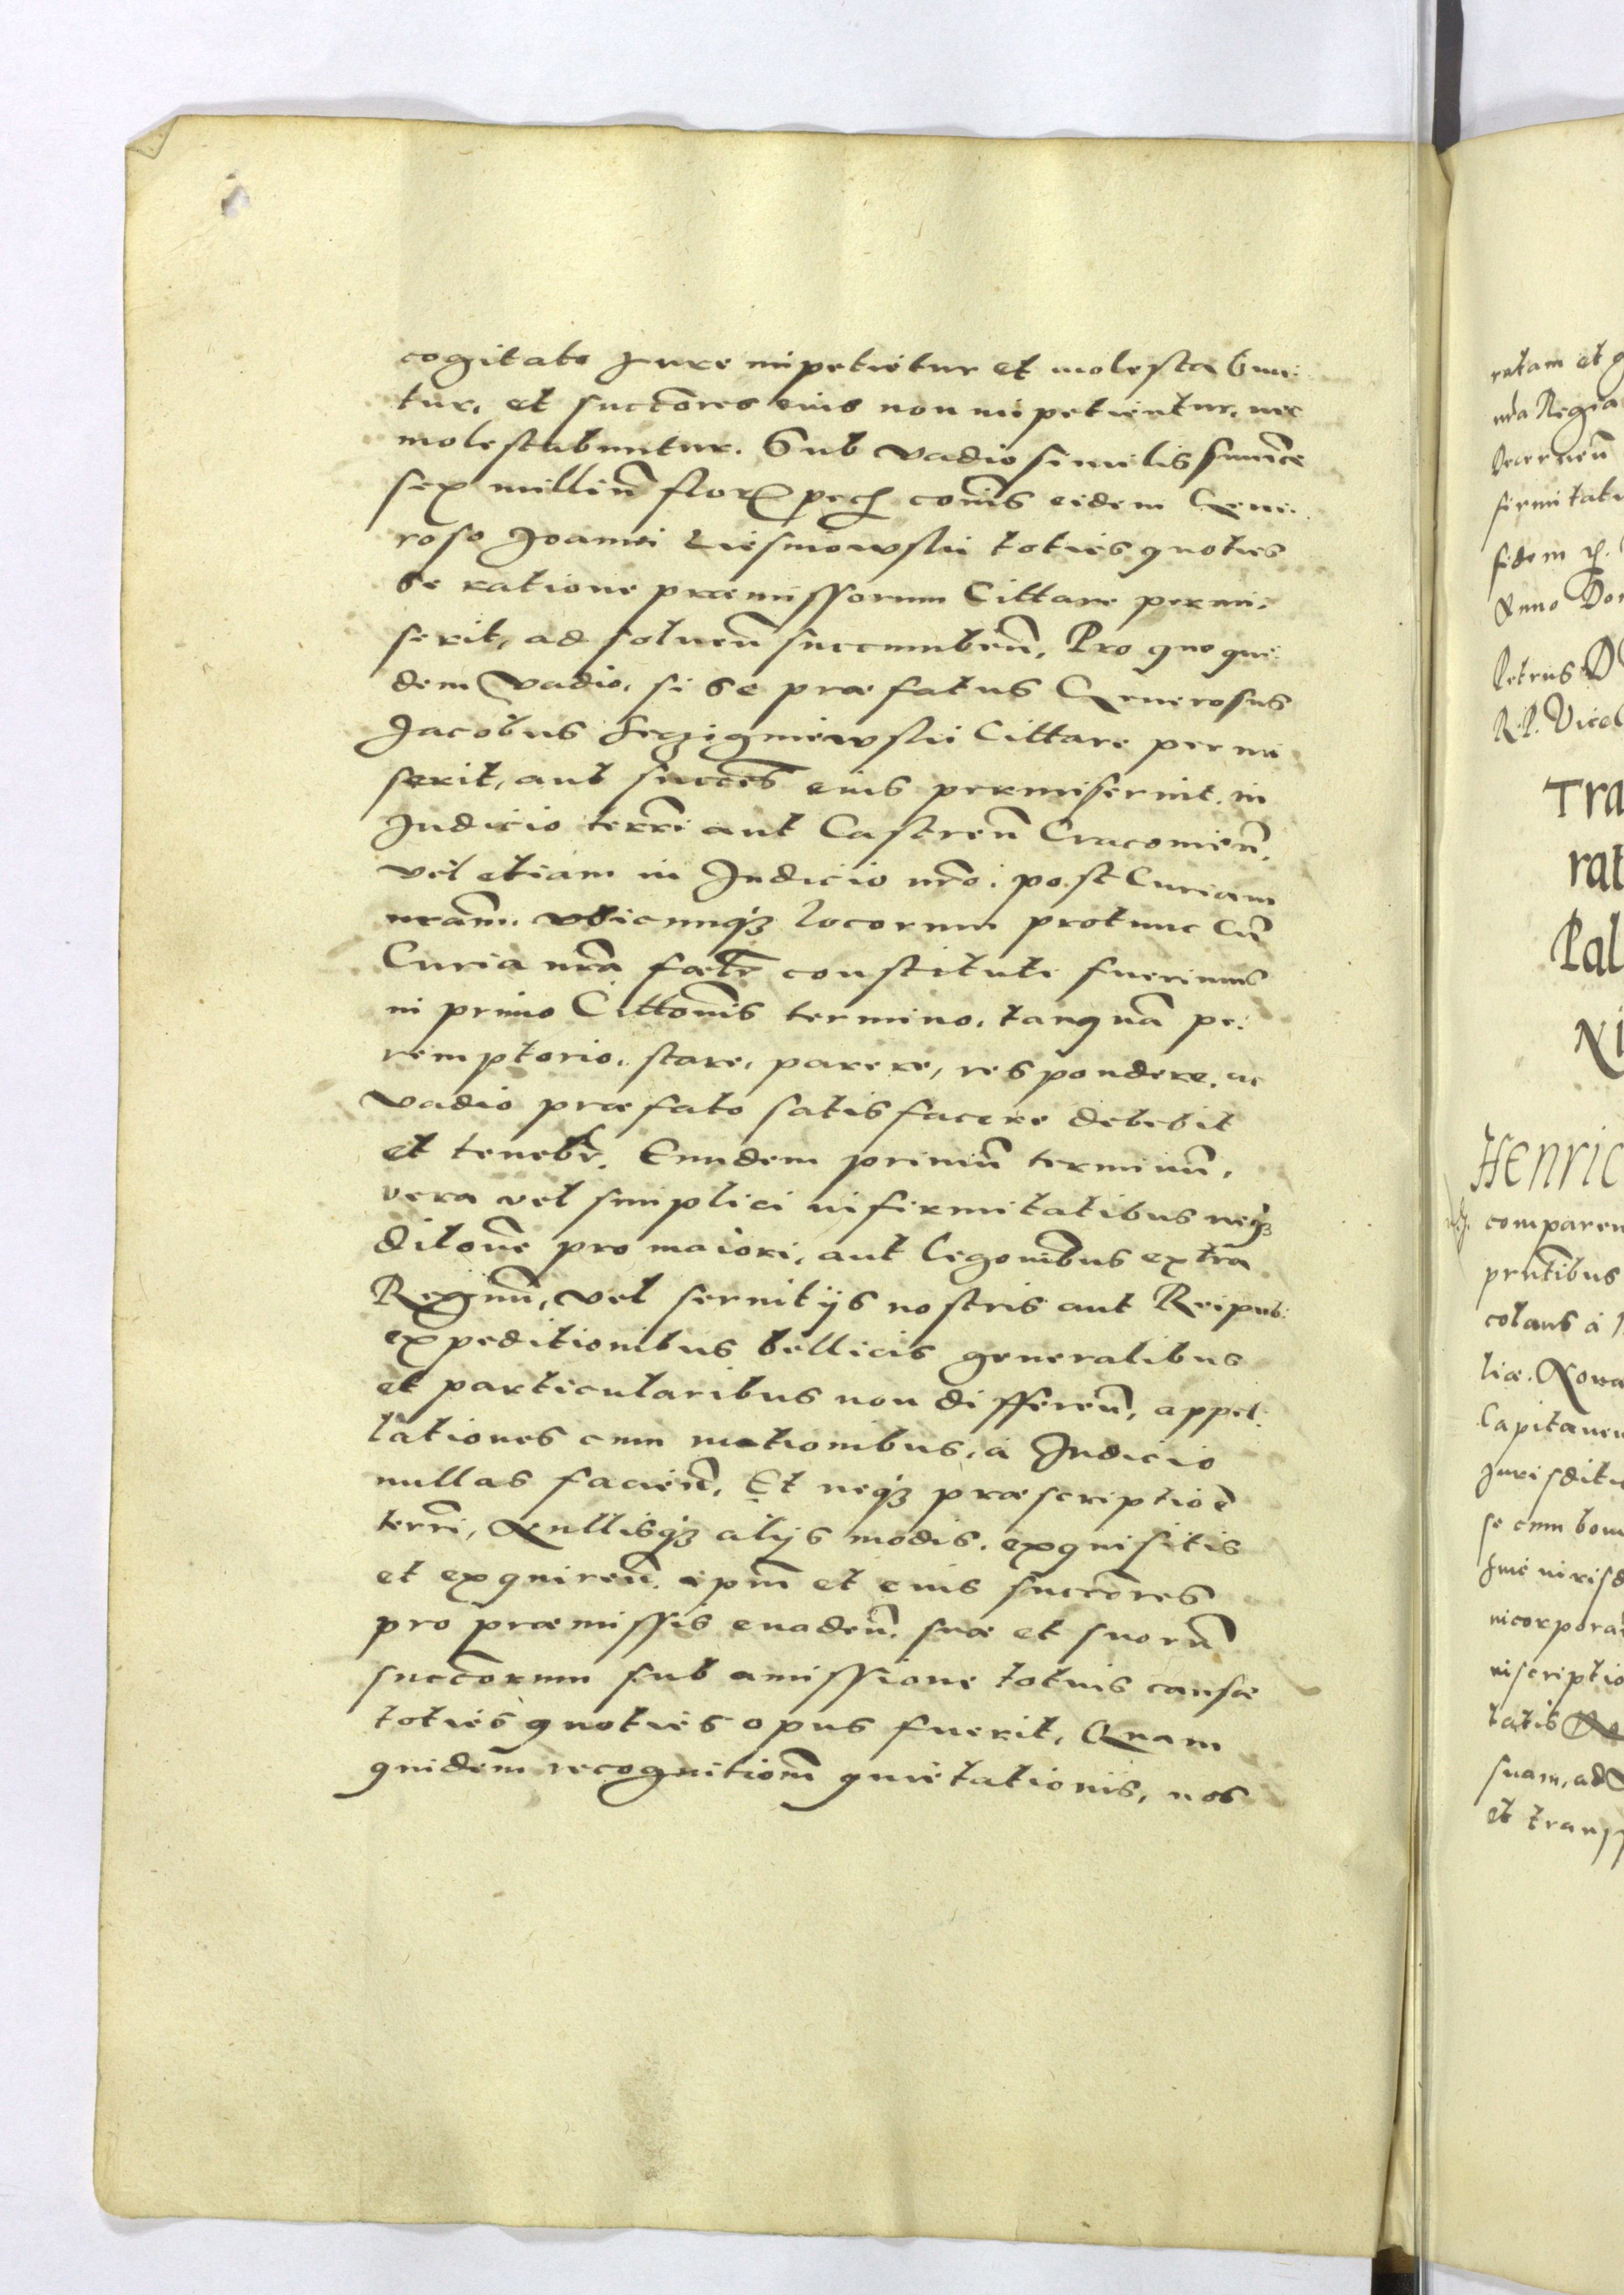 cogitato Jure impetietur et molestabuni:
tur, et succōres eius non impetientur, nec
molestabuntur. Sub vadio similis summæ
sex milliū flor pech comis eidem Gene:
roso Joanni toties quoties
se ratione præmissorum Cittare permi:
serit, ad soluen̄ succumben̄, Pro quo qui:
dem Vadio, si se præfatus Generosus
Jacobus Cittare permi
serit, aut succes̄ eius permiserint, in
Judicio terrī aut Castren̄ Cracouien̄,
vel etiam in Judicio nrō: post Curiam
nrām, vbicunqz locorum protunc Cū
Curia nrā fælr constituti fuerimus
in primo Cittonis termino, tanquā pe:
remptorio, stare, parere, respondere, ac
vadio præfato satisfacere debebit
et tenebr̄. Eundem primū terminū,
vera vel simplici infirmitatibus neqz
ditone pro maiori, aut legonibus extra
Regnū, vel seruitijs nostris aut Reipub:
expeditionibus bellicis generalibus
et particularibus non differen̄, appel:
lationes cum motionibus, a Judicio
nullas facien̄, Et neqz præscriptioē
terri, Nullisqz alijs modis, exquisitis
et exquiren̄, ipm̄ et eius succōres
pro præmissis euaden̄, suæ et suorū
succorum sub amissione totius causæ
toties quoties opus fuerit, Quam
quidem recognitiom̄ quietationis, nos
ratam et g
nrā Regia
Decernen̄
firmitati
fidem
Anno Do
Petrus D
R.P. Vicec
Tra
rat
Pal
Ni
Henric
comparen
pnt̄ibus
colaus à
liæ. Nowa
Capitaneu
Jurisditi
se cum boni
incorpora
inscriptio
tatis
suam, ad
et transf